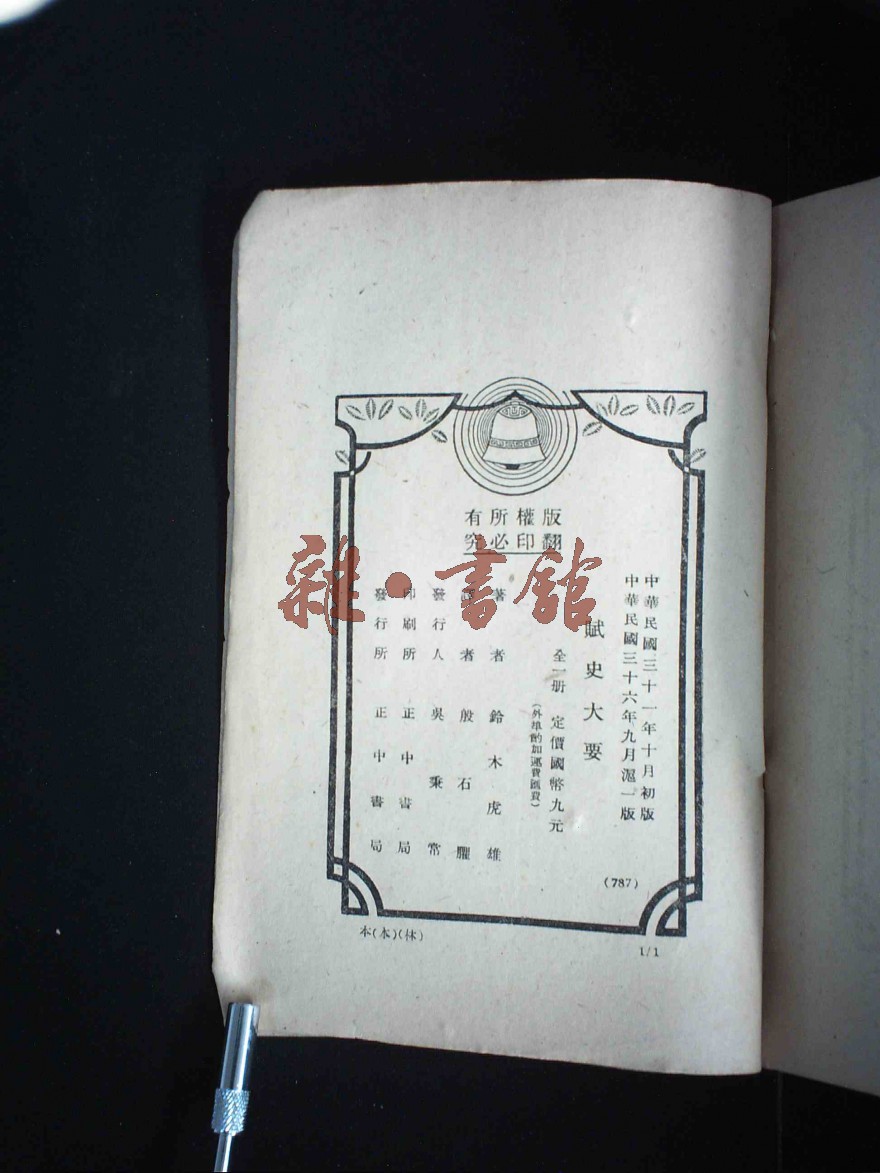 版權所有
翻印必究
中華民國三十一年十月初版
中華民國三十六年九月滬一版
賦史大要
全一册 定價國幣九元
(外埠酌加運費匯費)
著者 鈴木虎雄
譯者 殷石臞
發行人 吳秉常
印刷所 正中書局
發行所 正中書局
(787)
本(本)(林)
1/1
雜·書館